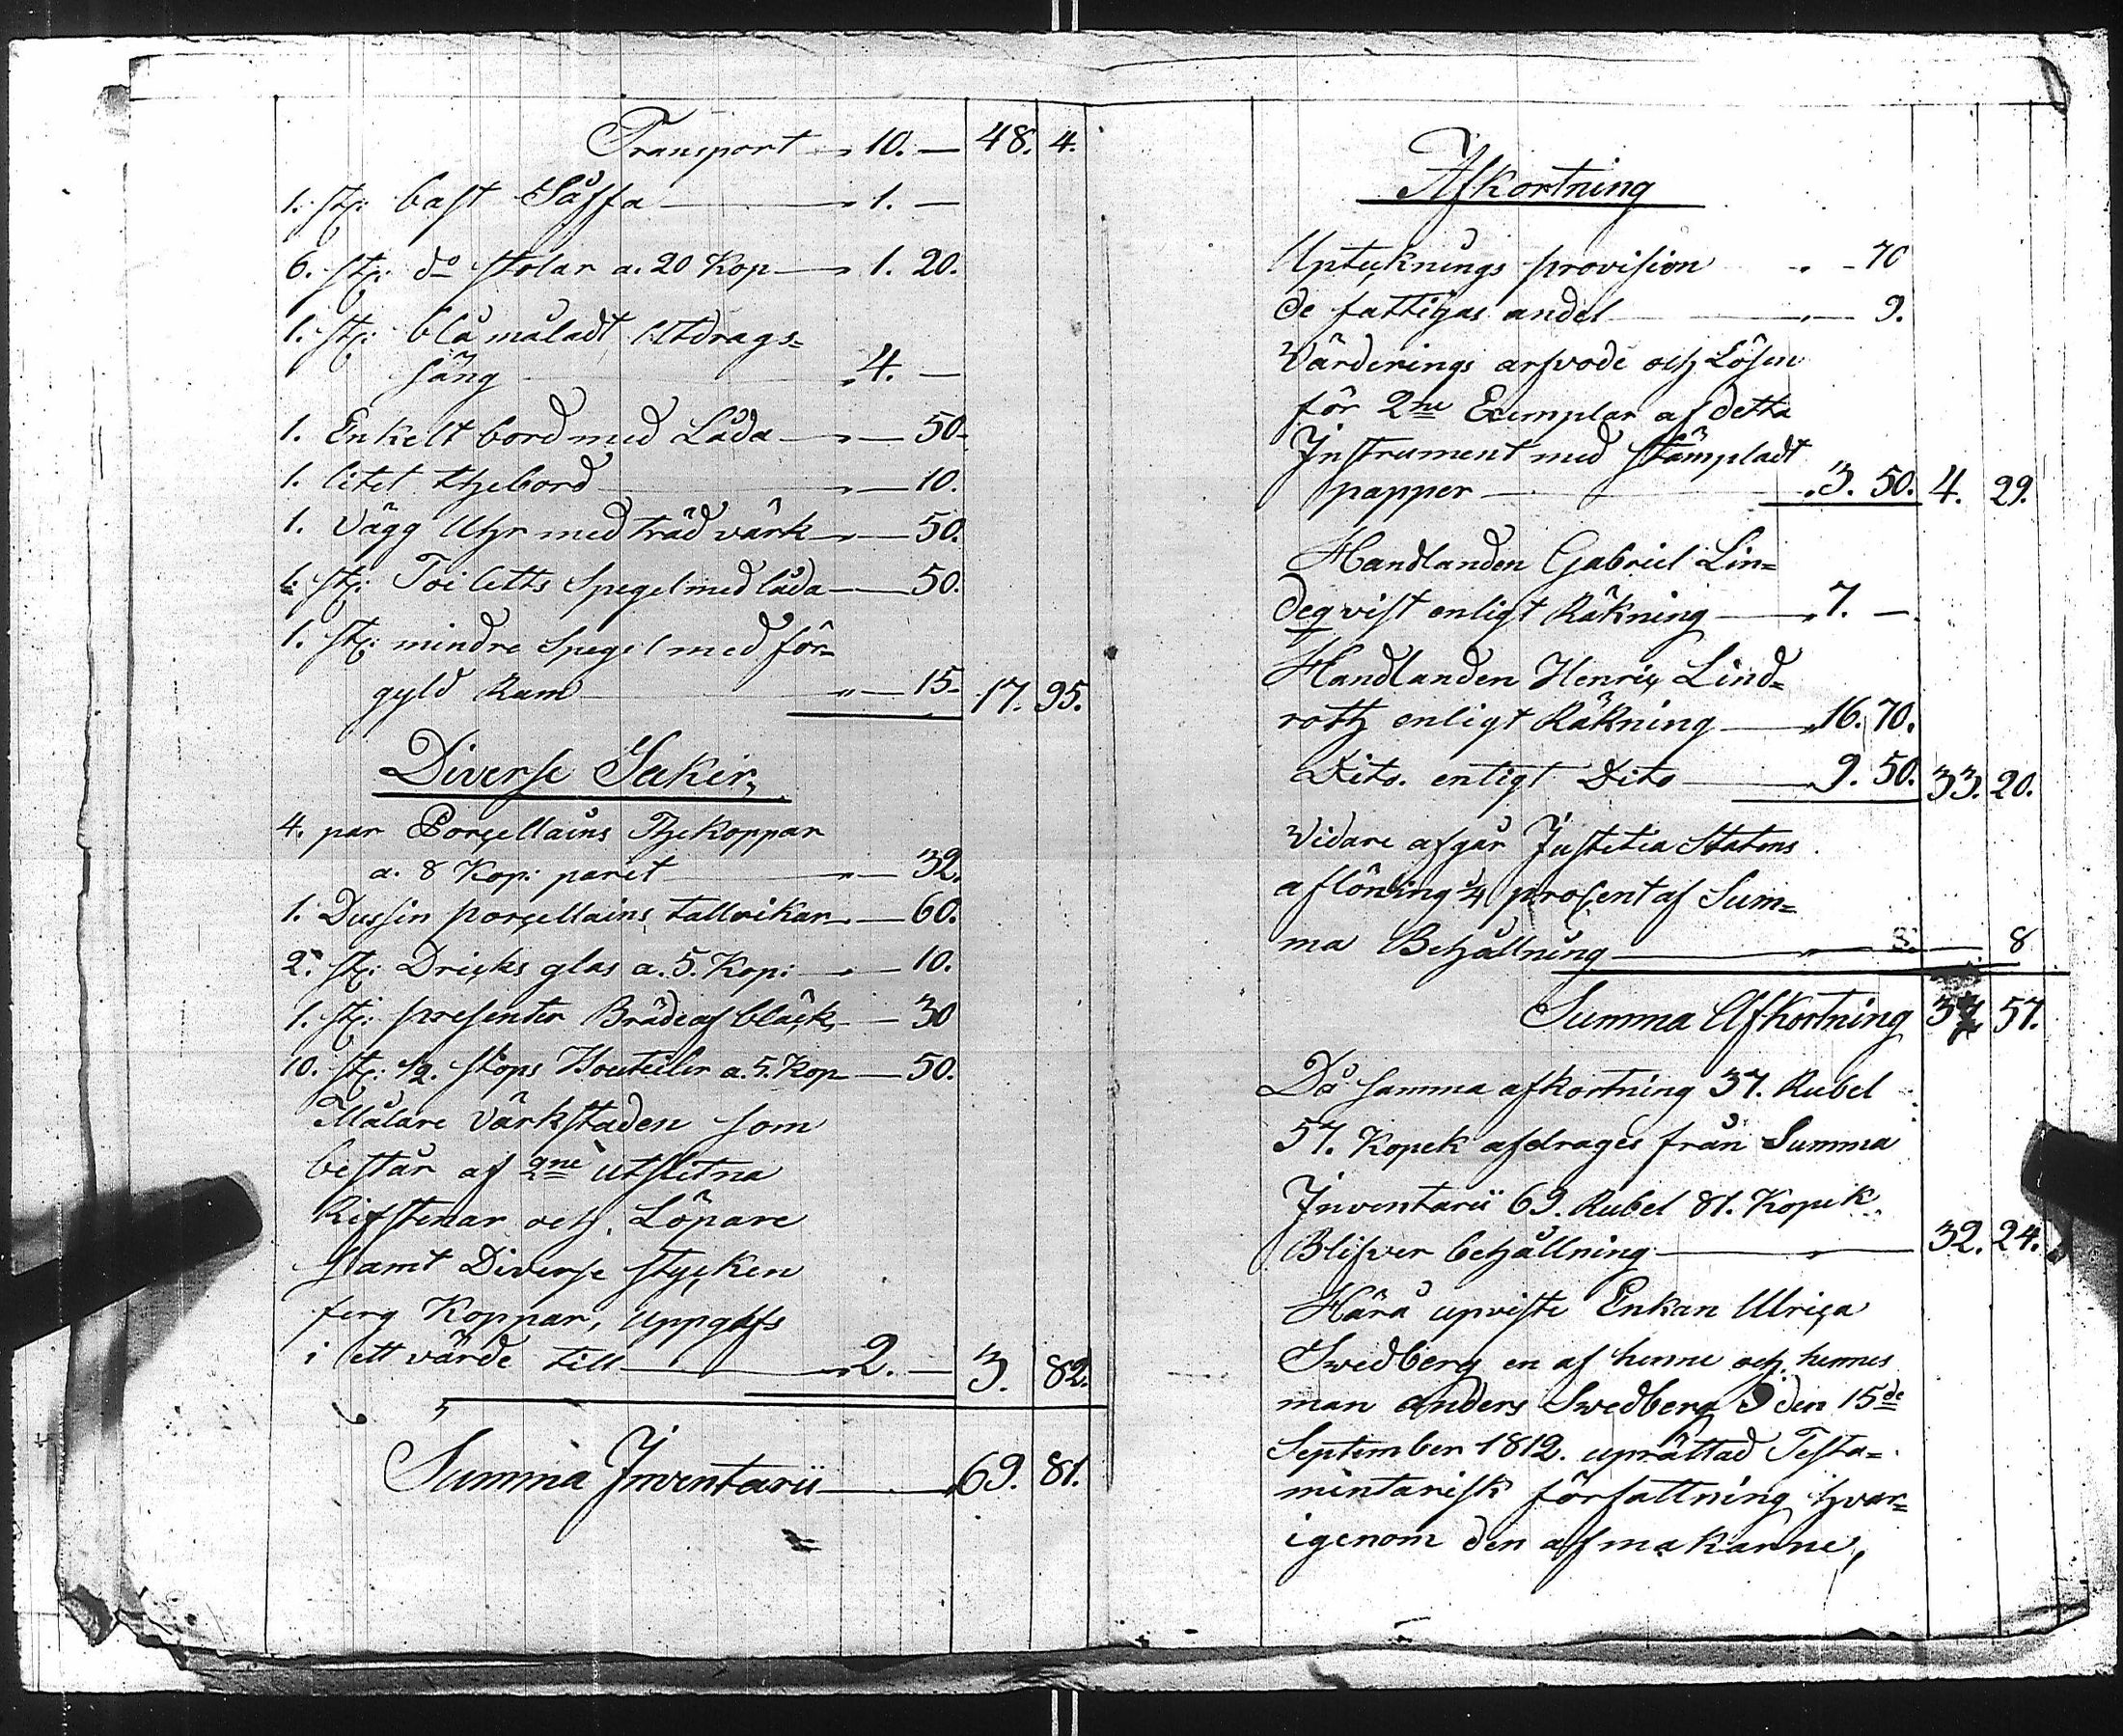 Transport " 10. — 48. 4.
1. st: bast Såffa " 1. —
6. st: do stolar a. 20 Kop " 1. 20.
1. st: blå måladt Utdrags=
säng " 4. —
1. Enkelt bord med Låda " — 50.
1. litet thebord " — 10.
1. Vägg Uhr med träd värk " — 50.
1. st: Toiletts Spegel med låda — 50.
1. st: mindre Spegel med för=
gyld Ram " — 15. 17. 95.
Diverse Saker,
4. par Porcellains Thekoppar
a. 8 Kop: paret " — 32.
1. Dussin porcellains tallrikar " — 60.
2. st: Dricks glas a. 5. Kop: " — 10.
1. st: presenter Bräde af bläck — 30
10. st: 1/2. stops Bouteiler a. 5. Kop — 50.
Målare värkstaden som
består af 2ne utslitna
Rifstenar och Löpare
samt Diverse stycken
ferg Koppar, uppgafs
i ett värde till " 2. — 3. 82.
Summa Inventarii 69. 81.
Afkortning
Upteknings provision " — 70
de fattigas andel " — 9.
Värderings arfvode och Lösen
för 2ne Exemplar af detta
Instrument med stämpladt
papper " 3. 50. 4. 29.
Handlanden Gabriel Lin=
deqvist enligt Räkning " 7. —
Handlanden Henric Lind=
roth enligt Räkning " 16. 70.
Dito. enligt Dito " 9. 50. 33. 20.
Vidare afgår Justitia Statens
aflöning 1/4 procent af Sum=
ma Behållning " — 8
Summa Afkortning 37. 57.
Då samma afkortning 37. Rubel
57. Kopek afdrages från Summa
Inventarii 69. Rubel 81. Kopek
Blifver behållning " 32. 24.
Härå upviste Enkan Ulrica
Swedberg en af henne och hennes
man Anders Swedberg den 15de
September 1812. uprättad Testa=
mentarisk författning hvar=
igenom den af makarne,